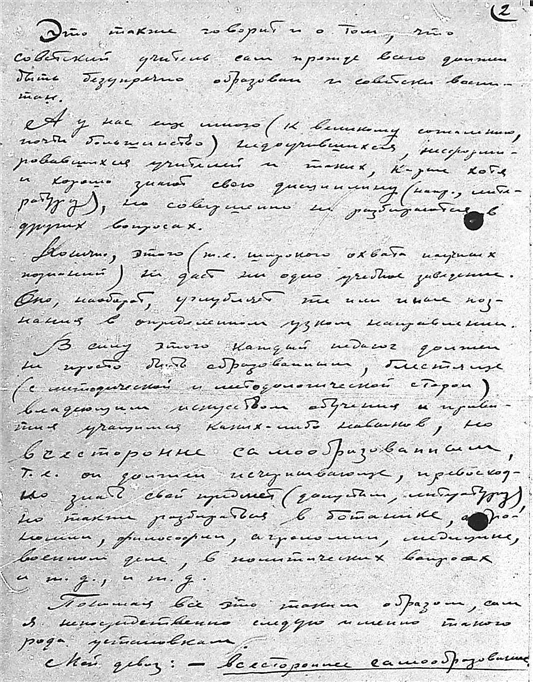 2
Это также говорит и о том, что
советский учитель сам прежде всего должен
быть безупречно образован и советски воспи-
тан.
А у нас еще много (к великому сожалению,
почти большинство) недоучившихся, несформи-
ровавшихся учителей и таких, к-рые хотя
и хорошо знают свою дисциплину (напр., лите-
ратуру), но совершенно не разбираются в
других вопросах.
Конечно, этого (т.е. широкого охвата научных
познаний) не даст ни одно учебное заведение.
Оно, наоборот, углубляет те или иные поз-
нания в определенном узком направлении.
В силу этого каждый педагог должен
не просто быть образованным, блестяще
(с методической и методологической сторон)
владеющим искусством обучения и приви-
тия учащимся каких-либо навыков, но
всесторонне самообразованным,
т.е. он должен исчерпывающе, превосход-
но знать свой предмет (допустим, литературу),
но также разбираться в ботанике, астро-
номии, философии, агрономии, медицине,
военном деле, в политических вопросах
и т.д., и т.д.
Понимая все это таким образом, сам
я непосредственно следую именно такого
рода установкам.
Мой девиз: – всестороннее самообразование